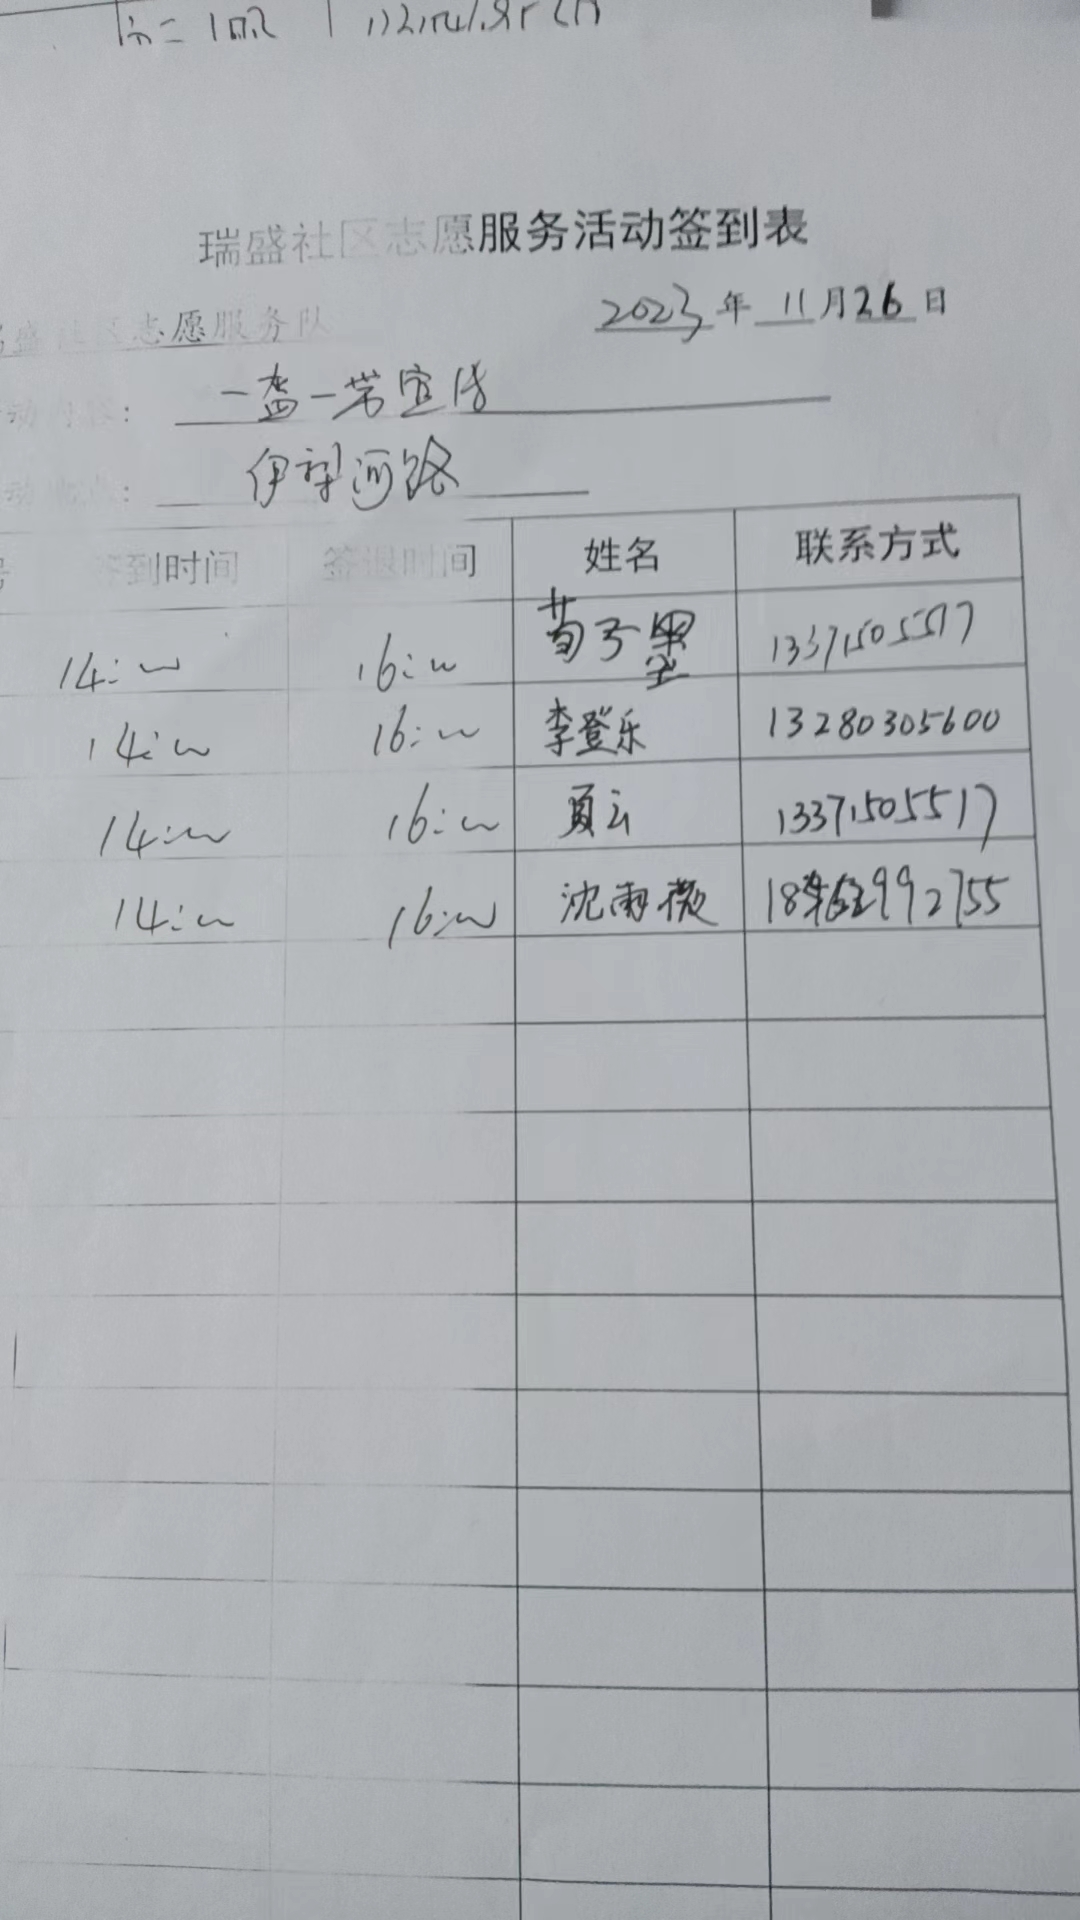 瑞盛社区志愿服务活动签到表
盛社区志愿服务队 2023年11月26日
动内容: 一盔一带宣传
动地点: 伊犁河路
号 签到时间 签退时间 姓名 联系方式
14:00 16:00 荀子墨 13371505517
14:00 16:00 李登乐 13280305600
14:00 16:00 夏云 13371505517
14:00 16:00 沈雨薇 992755